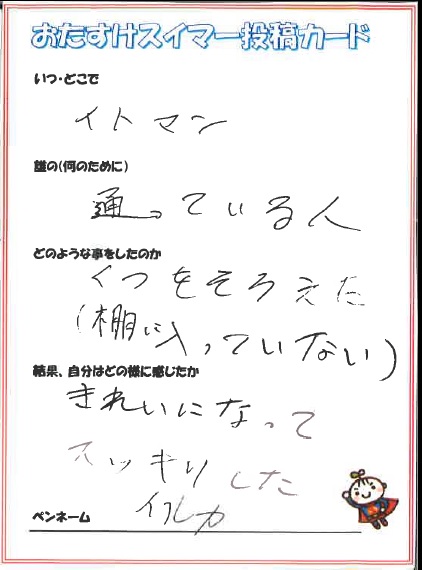 おたすけスイマー投稿カード
いつ・どこで
イトマン
誰の(何のために)
通っている人
どのような事をしたのか
くつをそろえた
(棚に入っていない)
結果、自分はどの様に感じたか
きれいになって
スッキリした
ペンネーム イルカ